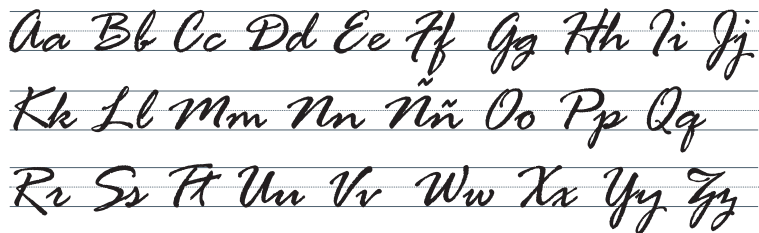 Aa Bb Cc Dd Ee Ff Gg Hh Ii Jj
Kk Ll Mm Nn Ññ Oo Pp Qq
Rr Ss Tt Uu Vv Ww Xx Yy Zz